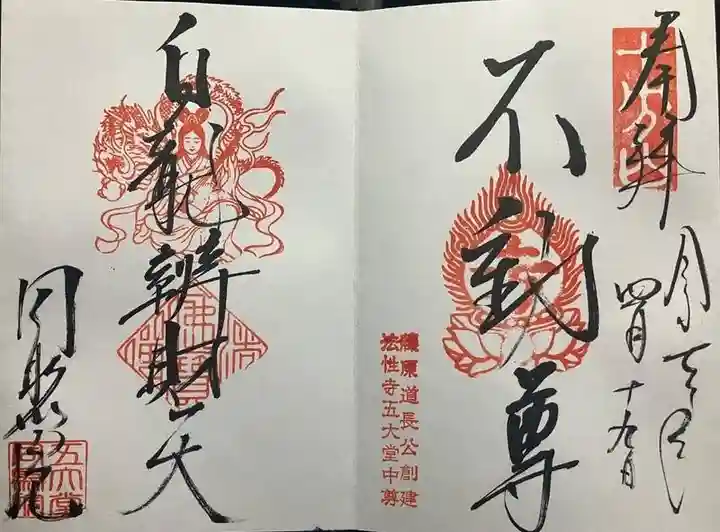 奉拝
四月十九日
不動尊
藤原道長公創建
法性寺五大堂中尊
白龍辨財天
同聚院
五大堂